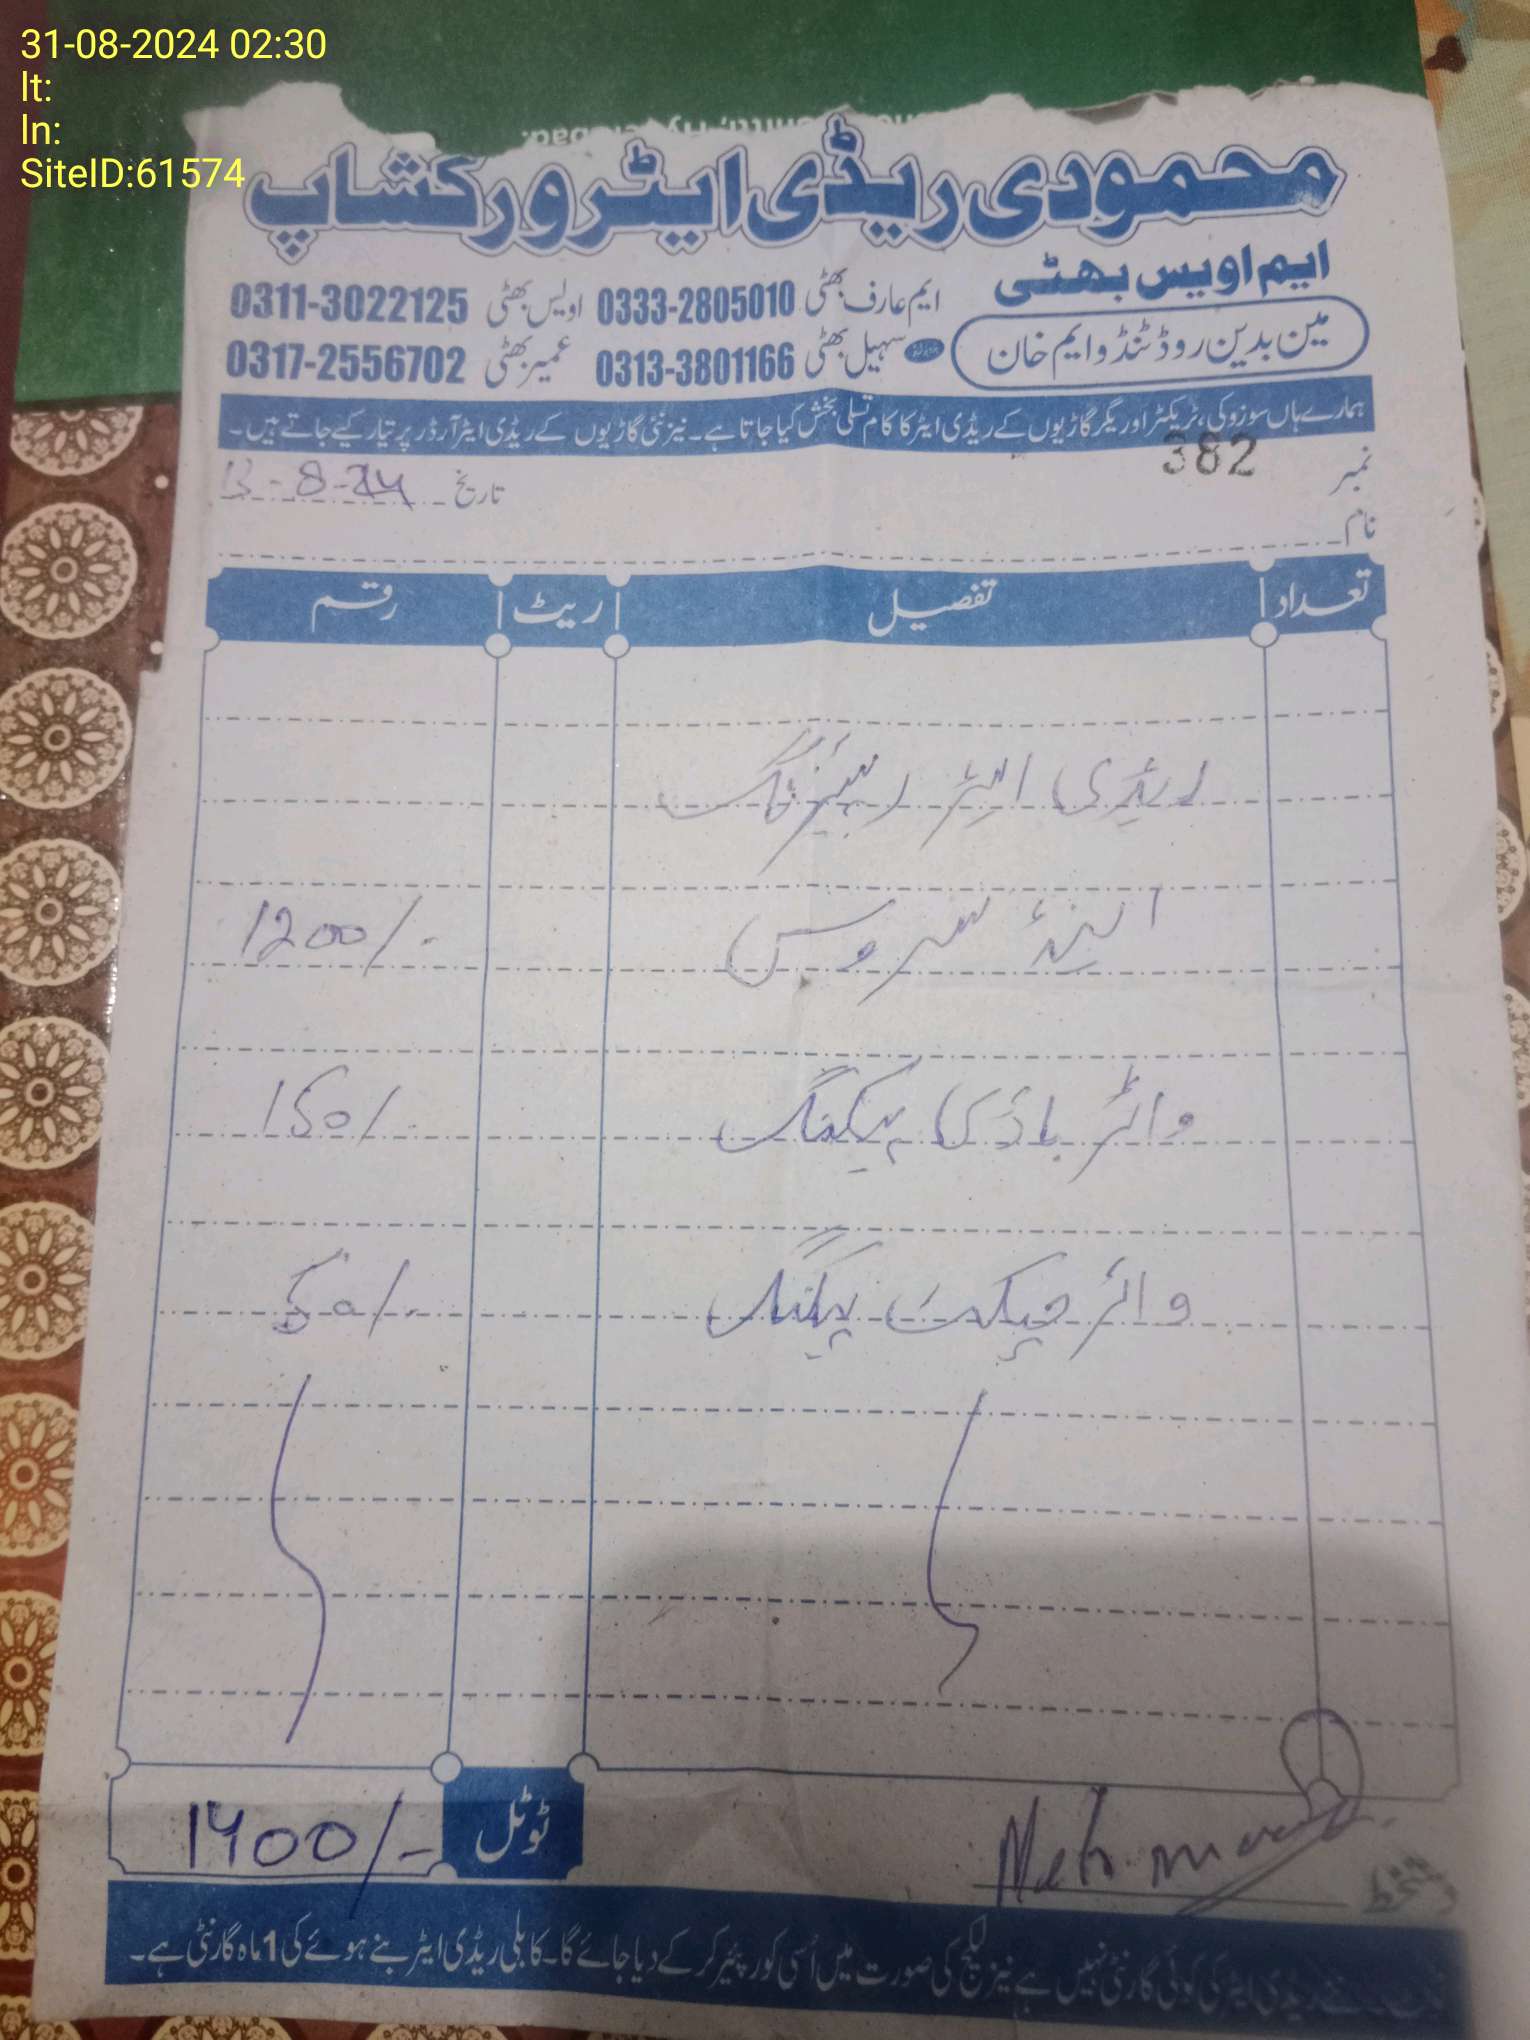 31-08-2024 02:30
lt:
ln:
SiteID:61574
محمودی ریڈی ایٹر ورکشاپ
ایم اویس بھٹی
مین بدین روڈ ٹنڈو ایم خان
ایم عارف بھٹی 0333-2805010 اویس بھٹی 0311-3022125
سہیل بھٹی 0313-3801166 عمیر بھٹی 0317-2556702
ہمارے ہاں سوزوکی، ٹریکٹر اور یگر گاڑیوں کے ریڈی ایٹر کا کام تسلی بخش کیا جاتا ہے۔ نیز نئی گاڑیوں کے ریڈی ایٹر آرڈر پر تیار کیے جاتے ہیں۔
نمبر 382
تاریخ 13-8-24
نام
تعداد تفصیل ریٹ رقم
ریڈی ایٹر رپیئرنگ
اینڈ سروس 1200/-
واٹر باڈی پیکنگ 150/-
واٹر جیکٹ پیکنگ 50/-
ٹوٹل 1400/-
Mehmood
دستخط
ریڈی ایٹر کی کوئی گارنٹی نہیں ہے نیز لیکج کی صورت میں اُسی کو رپیئر کر کے دیا جائے گا۔ کابلی ریڈی ایٹر بنے ہوئے کی 1 ماہ گارنٹی ہے۔